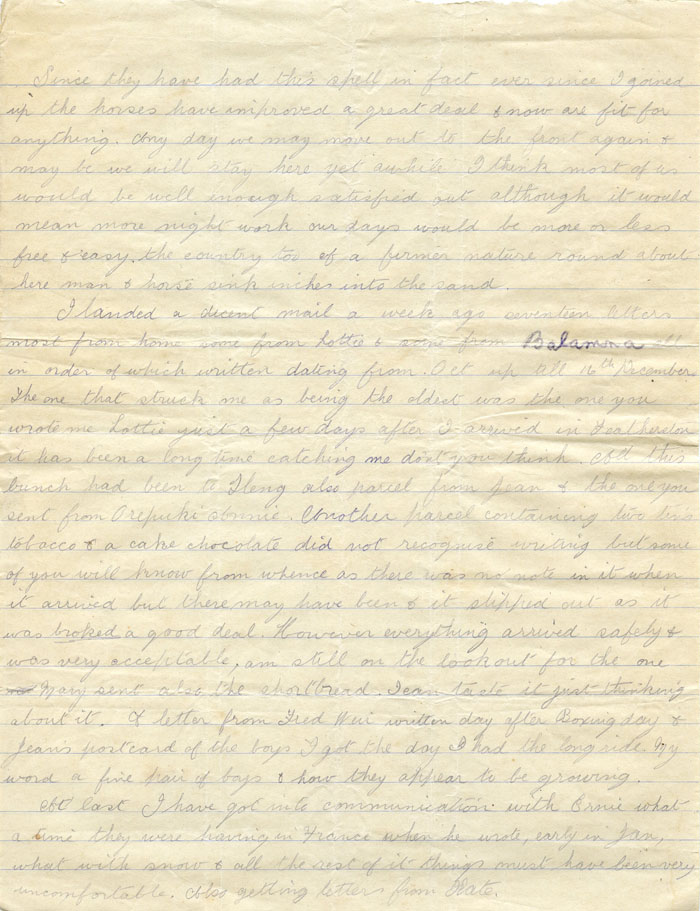 Since they have had this spell in fact ever since I joined
up the horses have improved a great deal & now are fit for
anything. Any day we may move out to the front again &
may be we will stay here yet awhile I think most of us
would be well enough satisfied out although it would
mean more night work our days would be more or less
free & easy, the country too of a firmer nature round about
here man & horse sink inches into the sand.
I landed a decent mail a week ago seventeen letters
most from home some from Lottie & some from Balamona all
in order of which written dating from Oct up till 16th December
The one that struck me as being the oldest was the one you
wrote me Lottie just a few days after I arrived in Featherston
it has been a long time catching me dont you think. All this
bunch had been to also parcel from Jean & the one you
sent from Orepuki Annie. Another parcel containing two tins
tobacco & a cake chocolate did not recognise writing but some
of you will know from whence as there was no note in it when
it arrived but there may have been & it slipped out as it
was broked a good deal. However everything arrived safely &
was very acceptable, am still on the lookout for the one
Mary sent also the shortbread. I can taste it just thinking
about it. A letter from Fred Weir written day after Boxing day &
Jean's postcard of the boys I got the day I had the long ride. My
word a fine pair of boys & how they appear to be growing.
At last I have got into communication with Ernie what
a time they were having in France when he wrote, early in Jan,
what with snow & all the rest of it things must have been very
uncomfortable. Also getting letters from Kate.